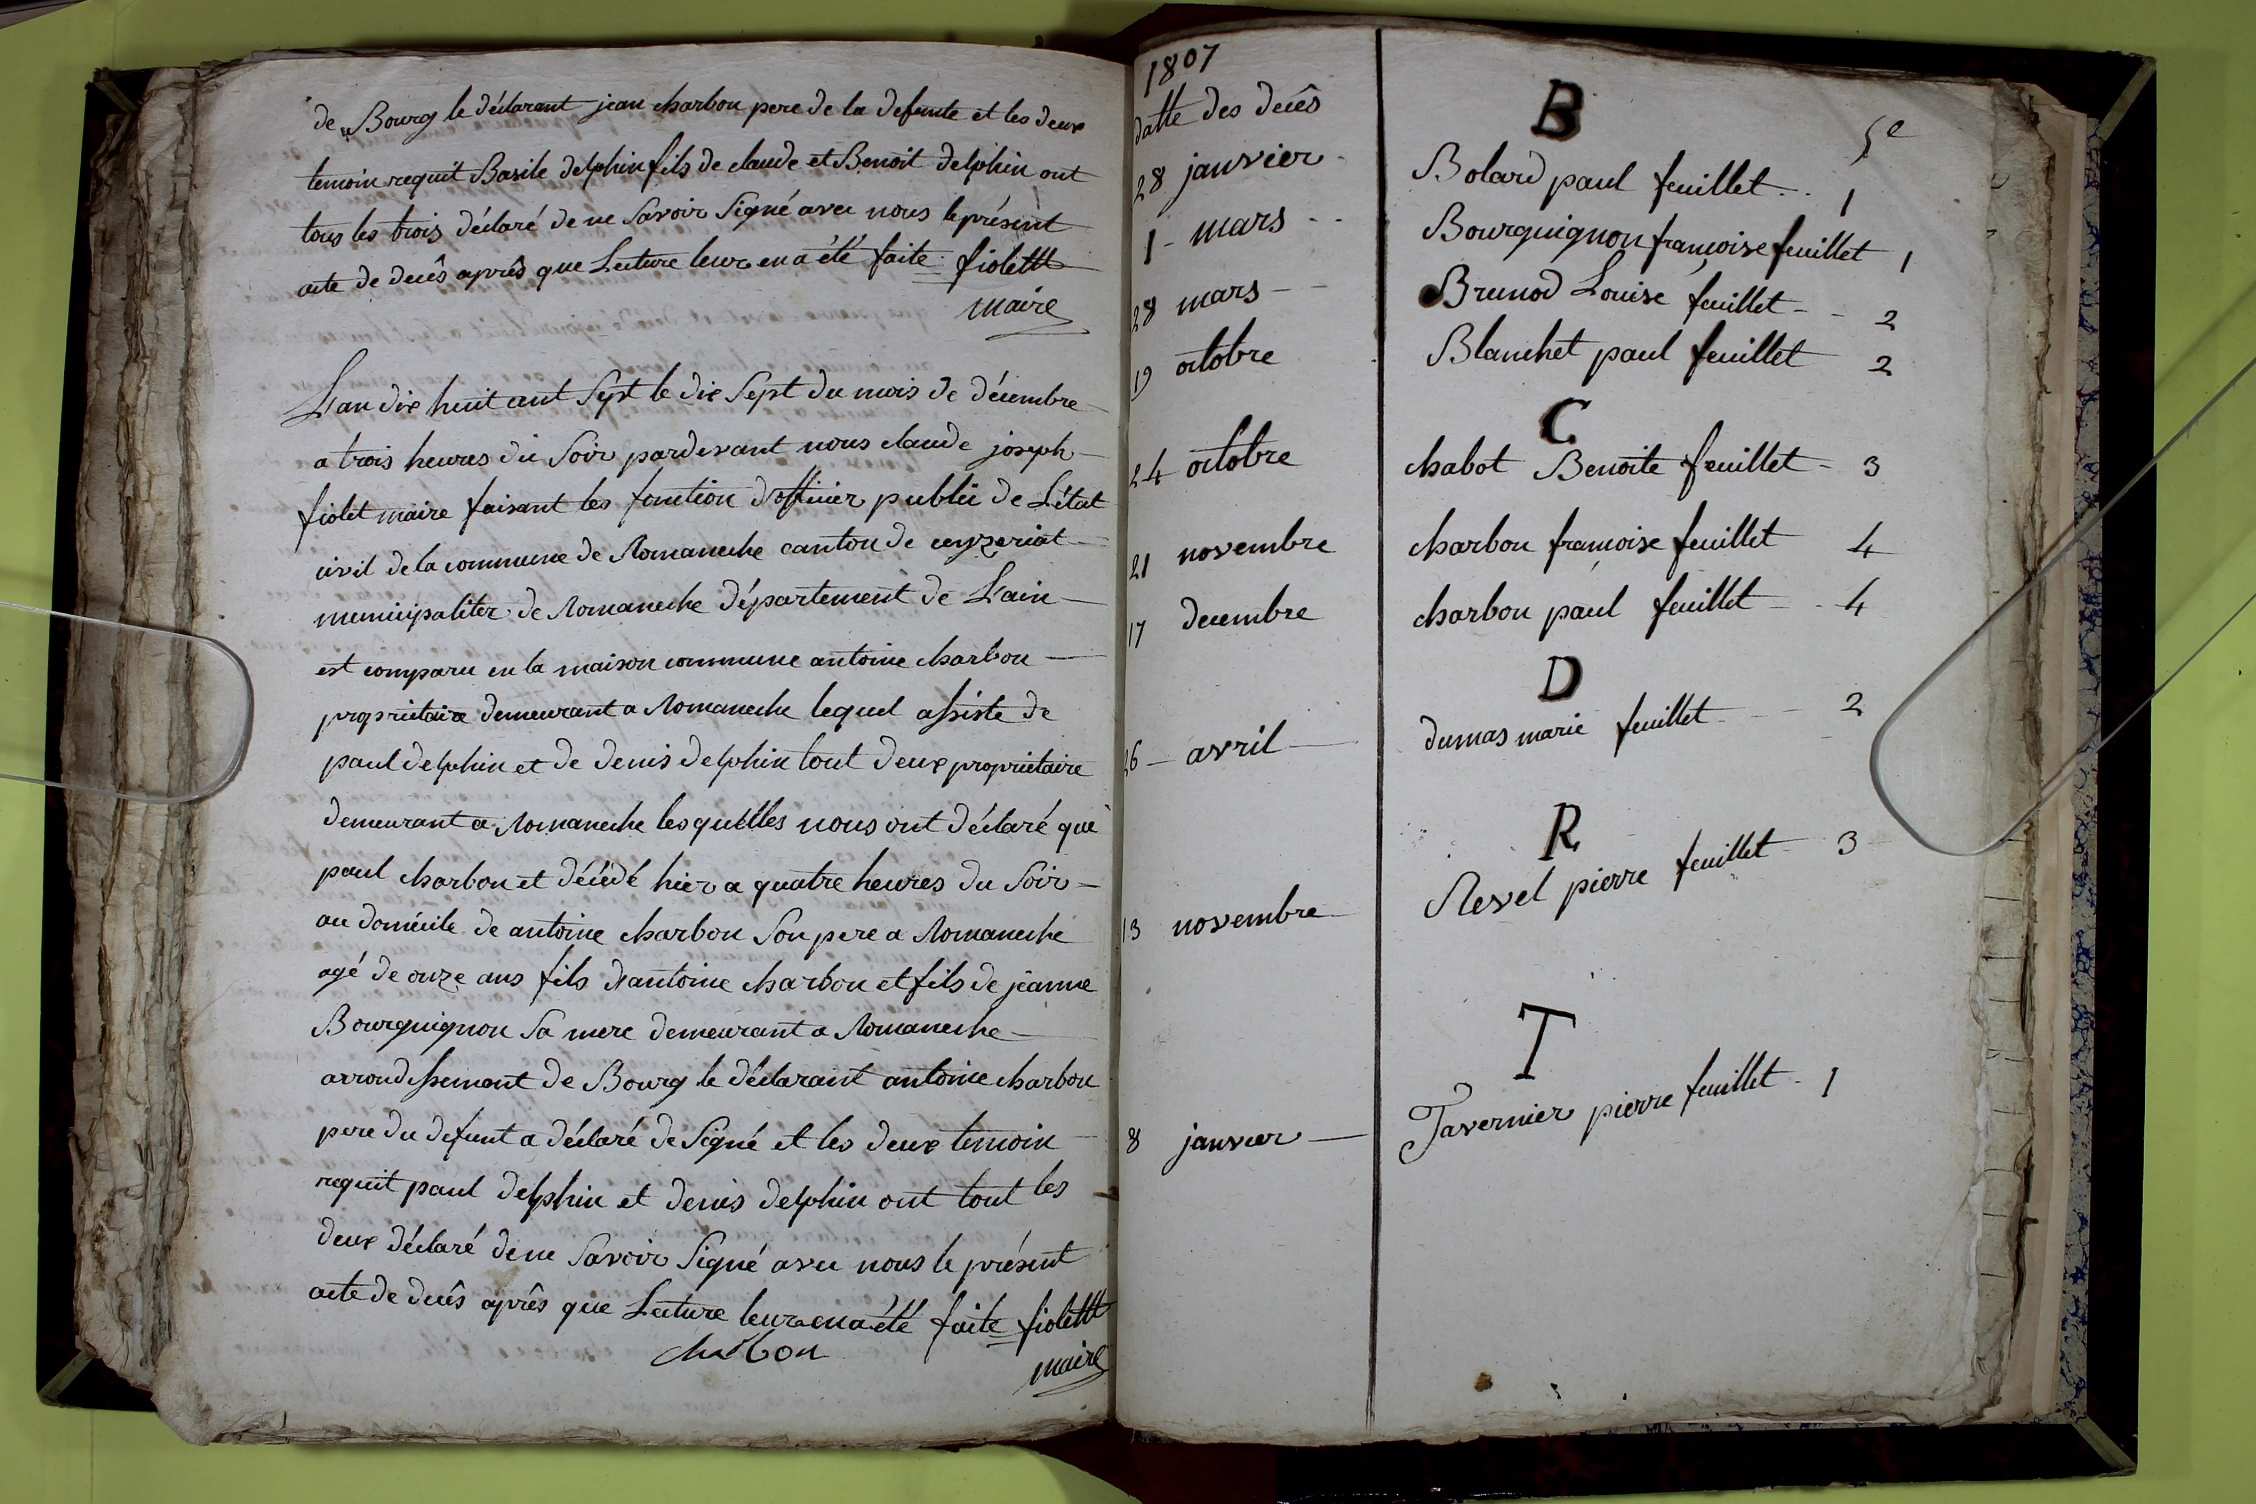 de Bourg le déclarant jean charbon pere de la defunte et les deux
temoin requit Basile delphin fils de claude et Benoit delphin ont
tous les trois déclaré de ne Savoir Signé avec nous le présent
acte de decês aprês que Lecture leur en a été faite fiolettt
maire
L'an dix huit cent Sept le dix Sept du mois de décembre
a trois heures du Soir pardevant nous claude joseph
fiolet maire faisant les fonction d'officier public de L'état
civil de la commune de Romaneche canton de ceyzeriat
municipaliter de Romaneche département de L'ain
est comparu en la maison commune antoine charbon
proprietaire demeurant a Romaneche lequel assiste de
paul delphin et de denis delphin tout deux proprietaire
demeurant a Romaneche lesquelles nous ont déclaré que
paul charbon et décédé hier a quatre heures du Soir
au domicile de antoine charbon Son pere a Romaneche
agé de onze ans fils d'antoine charbon et fils de jeanne
Bourguignon Sa mere demeurant a Romaneche
arrondissement de Bourg le déclarant antoine charbon
pere du defunt a déclaré de Signé et les deux temoin
requit paul delphin et denis delphin ont tout les
deux déclaré de ne Savoir Signé avec nous le présent
acte de decês aprês que Lecture leur en a été faite fiolettt
charbon
maire
1807
datte des decês
B
5e
28 janvier Bolard paul feuillet 1
1 mars Bourguignon françoise feuillet 1
28 mars Brunod Louise feuillet 2
19 octobre Blanchet paul feuillet 2
C
24 octobre chabot Benoite feuillet 3
21 novembre charbon françoise feuillet 4
17 decembre charbon paul feuillet 4
D
26 avril dumas marie feuillet 2
R
13 novembre Revel pierre feuillet 3
T
8 janvier Tavernier pierre feuillet 1